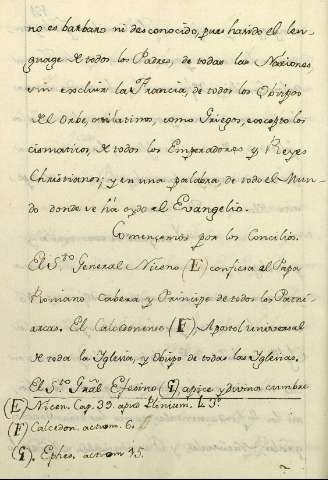 no es barbaro ni desconocido, pues ha sido el len-
guage de todos los Padres, de todas las Naciones
sin excluir la Francia, de todos los Obispos
del Orbe, assi latinos, como Griegos, excepto los
cismaticos, de todos los Emperadores y Reyes
Christianos; y en una palabra, de todo el Mun-
do donde se ha oydo el Evangelio.
Comencemos por los Concilios.
El S.to General Niceno (E) confiesa al Papa
Romano Cabeza y Principe de todos los Patri-
arcas. El Calcedonense (F) Apostol universal
de toda la Iglesia, y Obispo de todas las Iglesias.
El S.to Grãl Efesino (G) apice y divina cumbre
(E) Nicen. Cap. 39. apud L. 3.
(F) Calcedon. actiom. 6.
(G). Ephes. actiom 15.